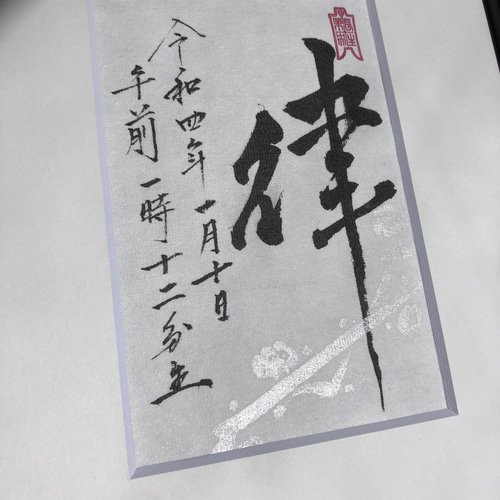 律
令和四年一月十日
午前一時十二分生